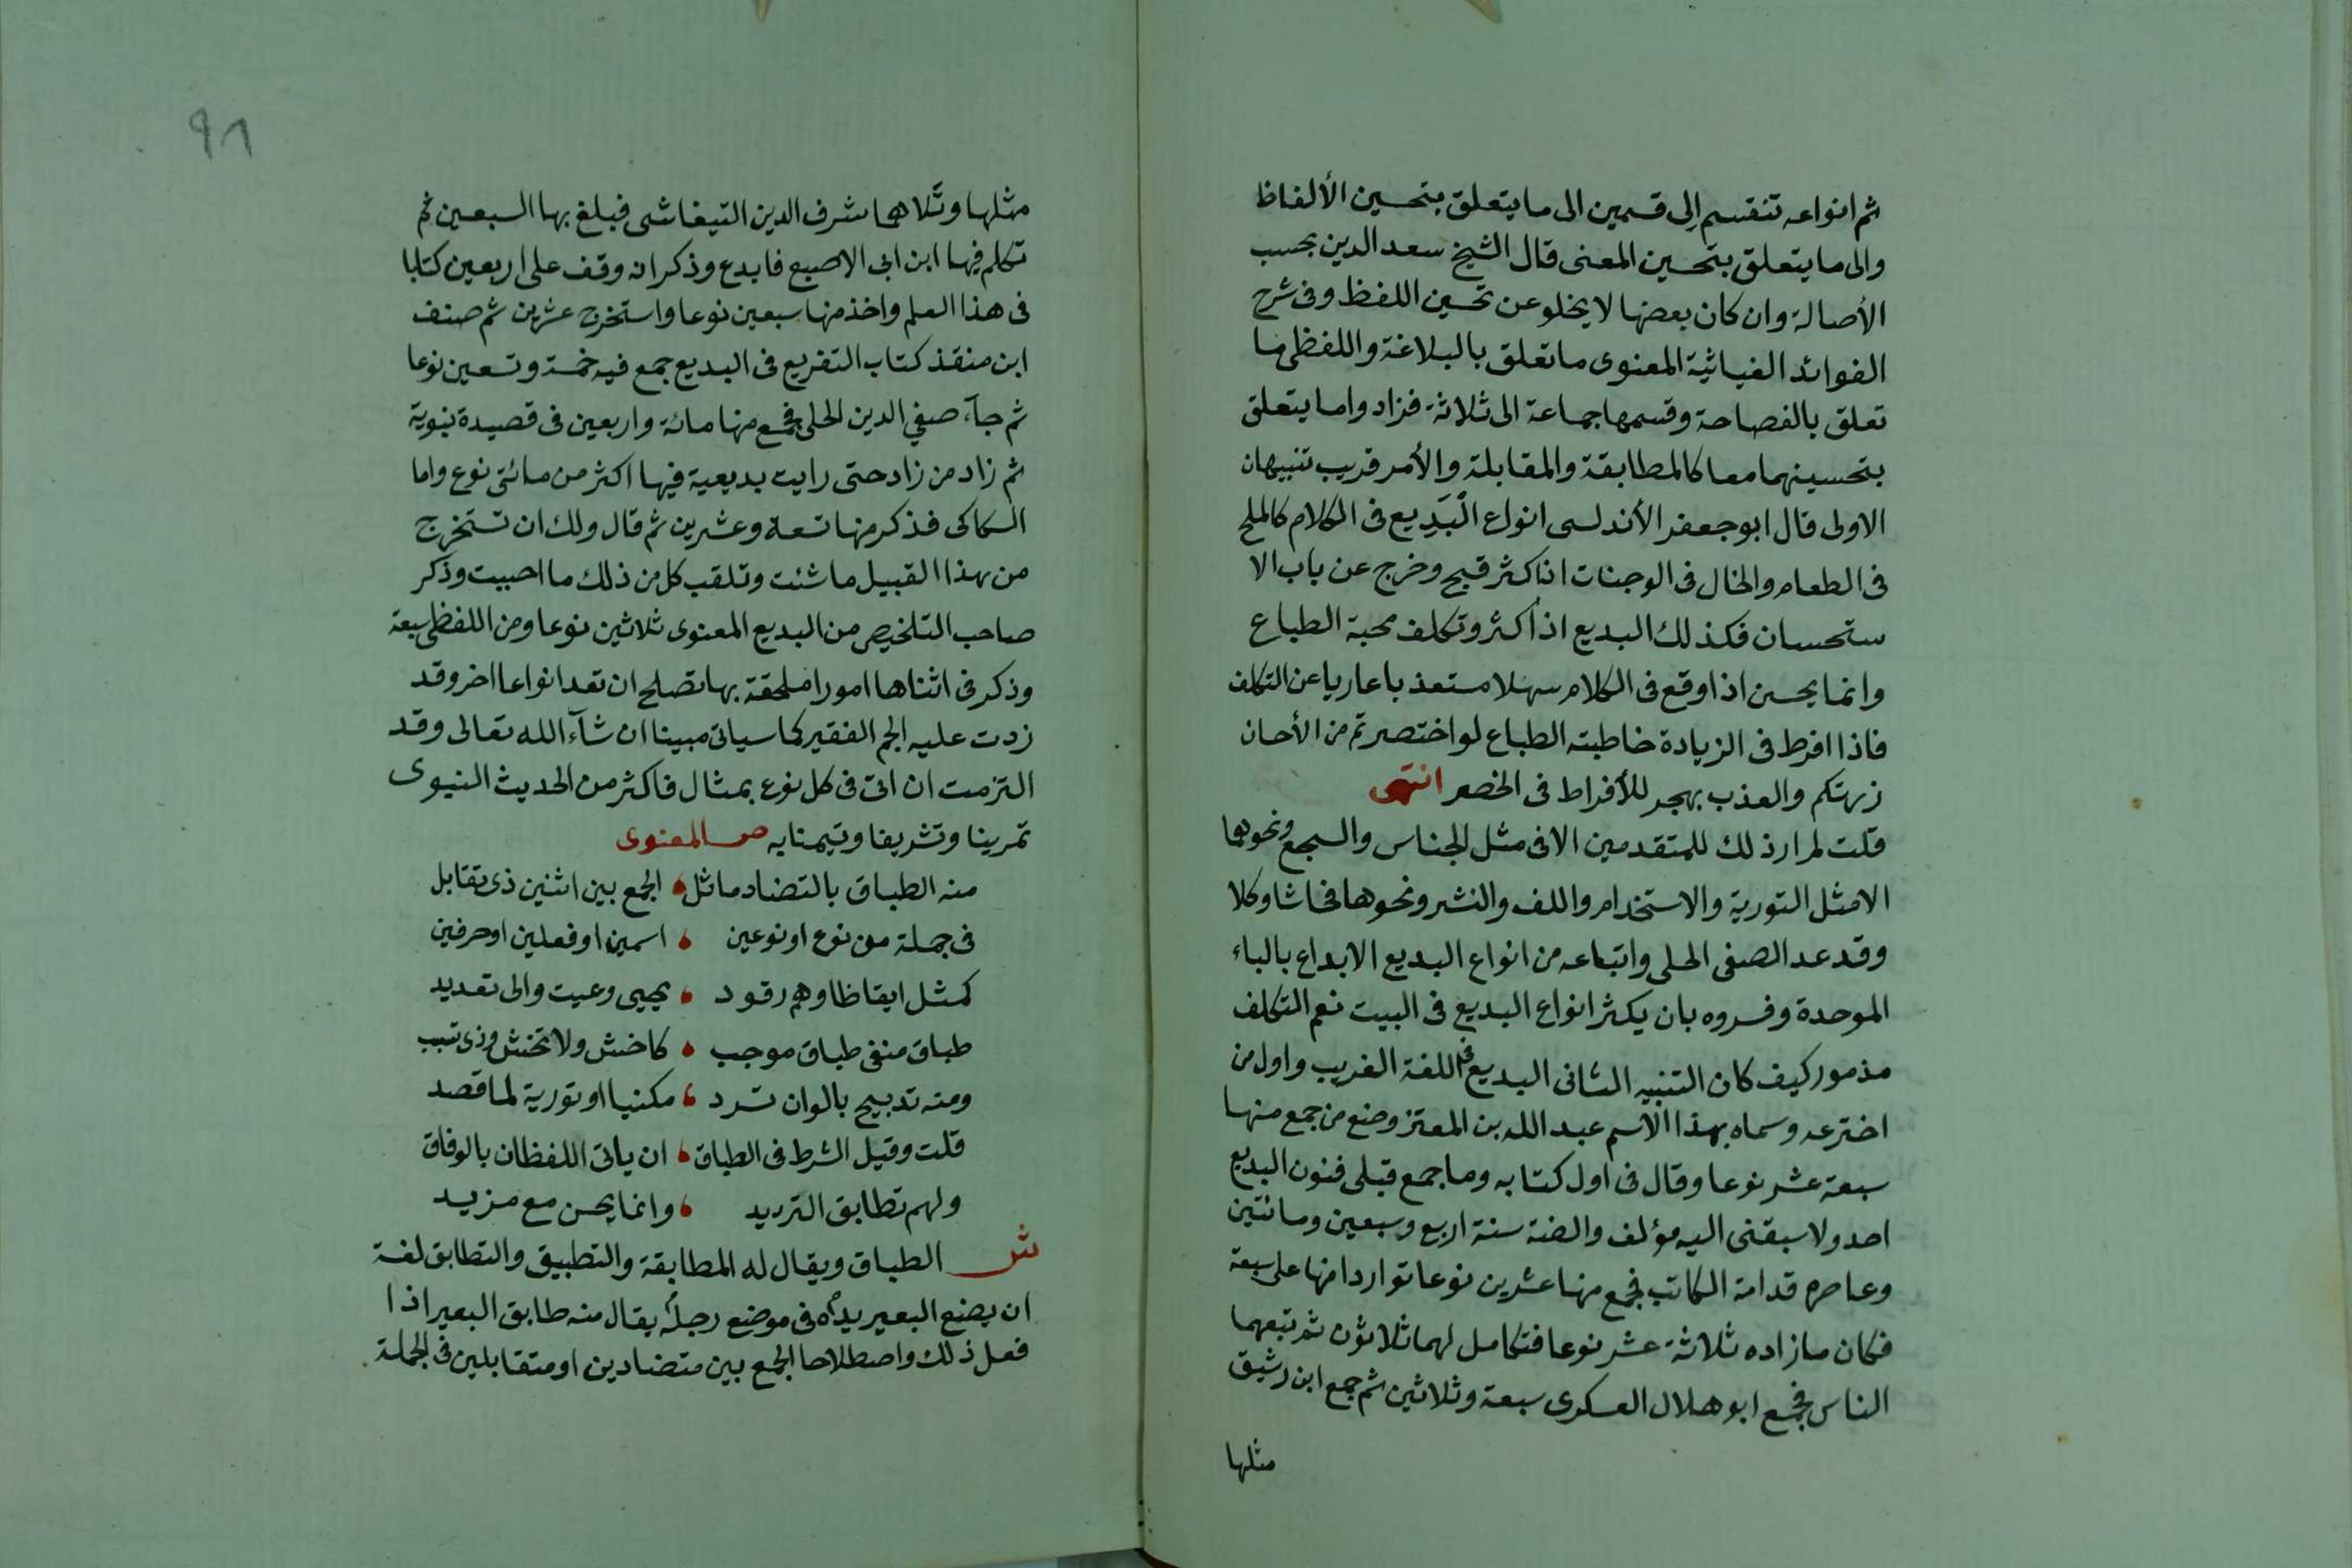 ثم انواعه تنقسم إلى قسمين الى ما يتعلق بتحسين الألفاظ
والى ما يتعلق بتحسين المعنى قال الشيخ سعد الدين بحسب
الأصالة وان كان بعضها لا يخلو عن تحسين اللفظ وفى شرح
الفوائد الغياثية المعنوى ما تعلق بالبلاغة واللفظى ما
تعلق بالفصاحة وقسمها جماعة الى ثلاثة فزاد واما يتعلق
بتحسينهما معا كالمطابقة والمقابلة والأمر قريب تنبيهان
الاولى قال ابو جعفر الأندلسى انواع البَدِيع فى الكلام كالملح
فى الطعام والخال فى الوجنات اذا كثر قبح وخرج عن باب الا
ستحسان فكذلك البديع اذا كثر وتكلف محبة الطباع
وانما يحسن اذا وقع فى الكلام سهلا مستعذبا عاريا عن التكلف
فاذا افرط فى الزيادة خاطبته الطباع لو اختصرتم من الأحسان
زرتكم والعذب يهجر للأفراط فى الخصر انتهى
قلت لم ار ذلك للمتقدمين الا فى مثل الجناس والسجع ونحوها
الا مثل التورية والاستخدام واللف والنشر ونحوها فحاشا وكلا
وقد عد الصفى الحلى واتباعه من انواع البديع الابداع بالباء
الموحدة وفسروه بان يكثر انواع البديع فى البيت نعم التكلف
مذموم كيف كان التنبيه الثانى البديع فى اللغة الغريب واول من
اخترعه وسماه بهذا الأسم عبد الله بن المعتز وضع من جمع منها
سبعة عشر نوعا وقال فى اول كتابه وما جمع قبلى فنون البديع
احد ولا سبقنى اليه مؤلف والفته سنة اربع وسبعين ومائتين
وعاصره قدامة الكاتب فجمع منها عشرين نوعا تواردا منها على سبعة
فكان ما زاده ثلاثة عشر نوعا فتكامل لهما ثلاثون ثم تبعهما
الناس فجمع ابو هلال العسكرى سبعة وثلاثين ثم جمع ابن رشيق
مثلها
٩٨
مثلها وتَلاهما شرف الدين التيفاشى فبلغ بها السبعين ثم
تكلم فيها ابن ابى الاصبع فابدع وذكر انه وقف على اربعين كتابا
فى هذا العلم واخذ منها سبعين نوعا واستخرج عشرين ثم صنف
ابن منقذ كتاب التفريع فى البديع جمع فيه خمسة وتسعين نوعا
ثم جآء صفي الدين الحلى فجمع منها مائة واربعين فى قصيدة نبوية
ثم زاد من زاد حتى رايت بديعية فيها اكثر من مائتى نوع واما
السكاكى فذكر منها تسعة وعشرين ثم قال ولك ان تستخرج
من هذا القبيل ما شئت وتلقب كل من ذلك ما احببت وذكر
صاحب التلخيص من البديع المعنوى ثلاثين نوعا ومن اللفظى سبعة
وذكر فى اثناها امورا ملحقة بها تصلح ان تعد انواعا اخر وقد
زدت عليه الجم الغفير كما سياتى مبينا ان شآء الله تعالى وقد
التزمت ان اتى فى كل نوع بمثال فاكثر من الحديث النبوى
تمرينا وتشريفا وتيمنا به ص المعنوى
منه الطباق بالتضاد ماثل الجمع بين اثنين ذى تقابل
فى جملة من نوع او نوعين اسمين او فعلين او حرفين
كمثل ايقاظا وهم رقود يحيى وعيت والى تعديد
طباق منفى طباق موجب كاخش ولا تخش وذى تسبب
ومنه تدبيج بالوان ترد مكنيا او تورية لما قصد
قلت وقيل الشرط فى الطباق ان ياتى اللفظان بالوفاق
ولهم تطابق الترديد وانما يحسن مع مزيد
ش الطباق ويقال له المطابقة والتطبيق والتطابق لغة
ان يضع البعير يده فى موضع رجله يقال منه طابق البعير اذا
فعل ذلك واصطلاحا الجمع بين متضادين او متقابلين فى الجملة